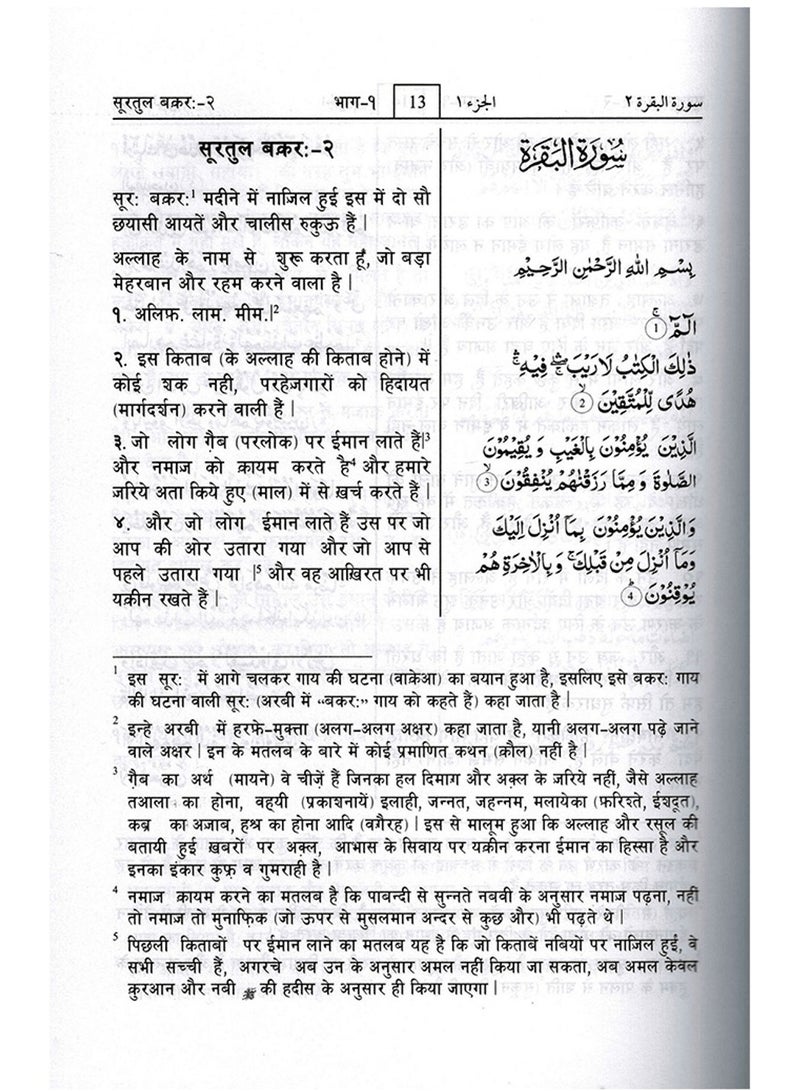 सूरतुल बक़र:-२ भाग-१ 13 الجزء ١ سورة البقرة ٢
सूरतुल बक़र:-२
सूर: बक़र:¹ मदीने में नाज़िल हुई इस में दो सौ
छयासी आयतें और चालीस रुकुऊ हैं |
अल्लाह के नाम से शुरू करता हूँ, जो बड़ा
मेहरबान और रहम करने वाला है |
१. अलिफ़. लाम. मीम.|²
२. इस किताब (के अल्लाह की किताब होने) में
कोई शक नही, परहेज़गारों को हिदायत
(मार्गदर्शन) करने वाली हैं |
३. जो लोग ग़ैब (परलोक) पर ईमान लाते हैं|³
और नमाज को क़ायम करते है⁴ और हमारे
जरिये अता किये हुए (माल) में से ख़र्च करते हैं |
४. और जो लोग ईमान लाते हैं उस पर जो
आप की ओर उतारा गया और जो आप से
पहले उतारा गया |⁵ और वह आख़िरत पर भी
यक़ीन रखते हैं |
سُوْرَةُ الْبَقَرَةِ
بِسْمِ اللهِ الرَّحْمٰنِ الرَّحِيْمِ
الٓمّٓ ۚ 1
ذٰلِكَ الْكِتٰبُ لَا رَيْبَ ۛ فِيْهِ ۛ
هُدًى لِّلْمُتَّقِيْنَ ۙ 2
الَّذِيْنَ يُؤْمِنُوْنَ بِالْغَيْبِ وَيُقِيْمُوْنَ
الصَّلٰوةَ وَمِمَّا رَزَقْنٰهُمْ يُنْفِقُوْنَ ۙ 3
وَالَّذِيْنَ يُؤْمِنُوْنَ بِمَآ اُنْزِلَ اِلَيْكَ
وَمَآ اُنْزِلَ مِنْ قَبْلِكَ ۚ وَبِالْاٰخِرَةِ هُمْ
يُوْقِنُوْنَ 4
¹ इस सूर: में आगे चलकर गाय की घटना (वाक़ेआ) का बयान हुआ है, इसलिए इसे बकर: गाय
की घटना वाली सूर: (अरबी में "बकर:" गाय को कहते हैं) कहा जाता है |
² इन्हे अरबी में हरफे-मुक्ता (अलग-अलग अक्षर) कहा जाता है, यानी अलग-अलग पढ़े जाने
वाले अक्षर | इन के मतलब के बारे में कोई प्रमाणित कथन (क़ौल) नहीं है |
³ ग़ैब का अर्थ (मायने) वे चीज़ें हैं जिनका हल दिमाग़ और अक़्ल के जरिये नहीं, जैसे अल्लाह
तआला का होना, वहयी (प्रकाशनायें) इलाही, जन्नत, जहन्नम, मलायेका (फ़रिश्ते, ईशदूत),
कब्र का अजाब, हश्र का होना आदि (वग़ैरह) | इस से मालूम हुआ कि अल्लाह और रसूल की
बतायी हुई ख़बरों पर अक़्ल, आभास के सिवाय पर यक़ीन करना ईमान का हिस्सा है और
इनका इंकार कुफ़्र व गुमराही है |
⁴ नमाज क़ायम करने का मतलब है कि पाबन्दी से सुन्नते नबवी के अनुसार नमाज पढ़ना, नहीं
तो नमाज तो मुनाफ़िक़ (जो ऊपर से मुसलमान अन्दर से कुछ और) भी पढ़ते थे |
⁵ पिछली किताबों पर ईमान लाने का मतलब यह है कि जो किताबें नबियों पर नाज़िल हुई, वे
सभी सच्ची हैं, अगरचे अब उन के अनुसार अमल नहीं किया जा सकता, अब अमल केवल
क़ुरआन और नबी ﷺ की हदीस के अनुसार ही किया जाएगा |